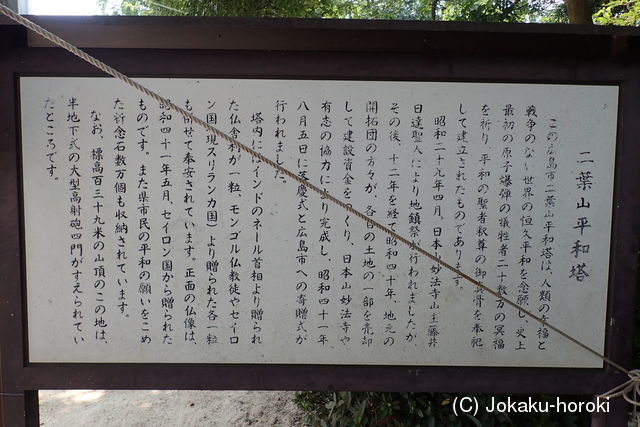 二葉山平和塔
この広島市二葉山平和塔は、人類の幸福と
戦争のない世界の恒久平和を念願し、史上
最初の原子爆弾の犠牲者二十数万の冥福
を祈り、平和の聖者釈尊の御真骨を奉祀
して建立されたものであります。
昭和二十九年四月、日本山妙法寺山主藤井
日達聖人により地鎮祭が行われましたが、
その後、十二年を経て昭和四十年、地元の
開拓団の方々が、各自の土地の一部を売却
して建設資金をつくり、日本山妙法寺や
有志の協力により完成し、昭和四十一年
八月五日に落慶式と広島市への寄贈式が
行われました。
塔内にはインドのネール首相より贈られ
た仏舎利が一粒、モンゴル仏教徒やセイロ
ン国(現スリランカ国)より贈られた各一粒
も併せて奉安されています。正面の仏像は、
昭和四十一年五月、セイロン国から贈られた
ものです。また県市民の平和の願いをこめ
た祈念石数万個も収納されています。
なお、標高百三十九米の山頂のこの地は、
半地下式の大型高射砲四門がすえられてい
たところです。
(C) Jokaku-horoki